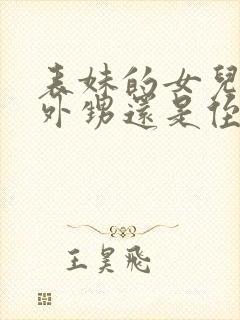 表妹的女兒
外甥還是侄
王昊飛